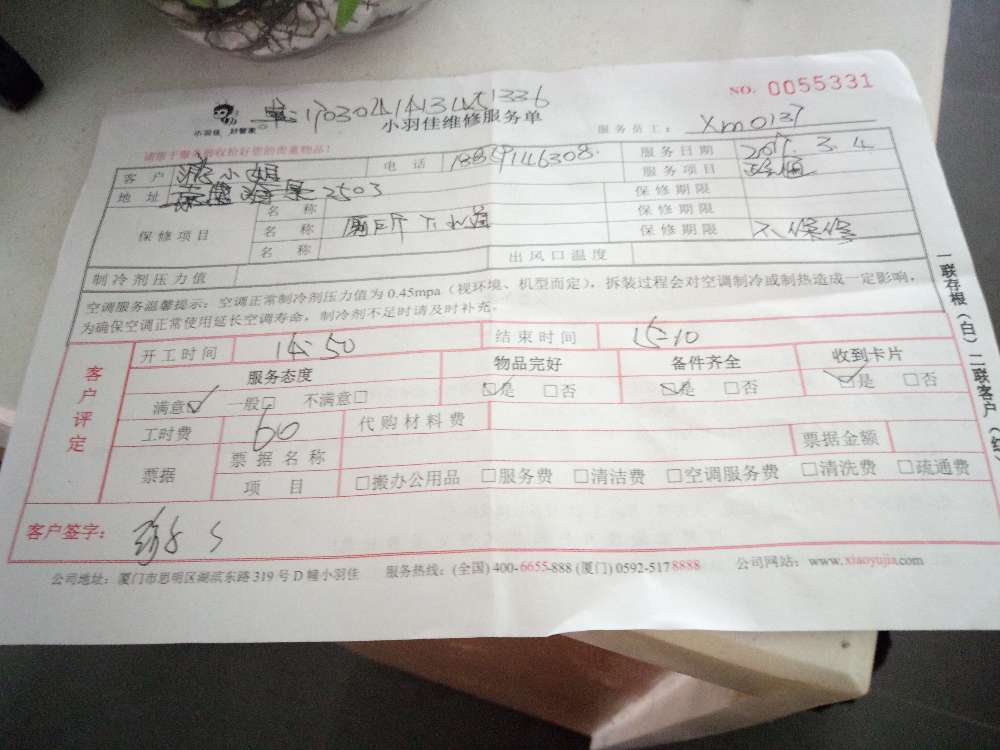 NO. 0055331
小羽佳 好管家
单:1703041413451336
小羽佳维修服务单
服务员工: Xm0137
请您于服务前收拾好您的贵重物品!
客户 小姐 电话 服务日期 2017.3.4
地址 2503 服务项目
保修项目 名称 保修期限
名称 厕所下水道 保修期限 不保修
名称 保修期限
制冷剂压力值 出风口温度
空调服务温馨提示:空调正常制冷剂压力值为0.45mpa(视环境、机型而定),拆装过程会对空调制冷或制热造成一定影响,
为确保空调正常使用延长空调寿命,制冷剂不足时请及时补充。
客户评定
开工时间 14:50 结束时间 15:10
服务态度 物品完好 备件齐全 收到卡片
满意☑ 一般□ 不满意□ ☑是 □否 ☑是 □否 ☑是 □否
工时费 60 代购材料费
票据 票据名称 票据金额
项目 □搬办公用品 □服务费 □清洁费 □空调服务费 □清洗费 □疏通费
客户签字:
公司地址:厦门市思明区湖滨东路319号D幢小羽佳 服务热线:(全国)400-6655-888(厦门)0592-5178888 公司网站:www.xiaoyujia.com
一联存根(白)二联客户(红